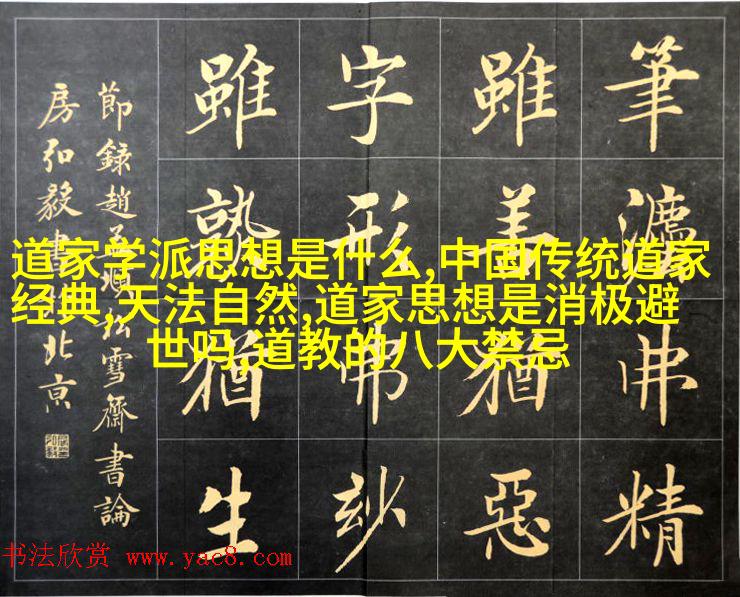 筆灋弗精
雖善猶惡
字形弗玅
雖熟猶生
節錄趙孟頫松雪齋書論
房弘毅書於北京
道家学派思想是什么,中国传统道家
经典,天法自然,道家思想是消极避
世吗,道教的八大禁忌
书法欣赏 www.yac8.com